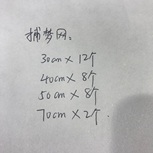 捕梦网:
30cm × 12个
40cm × 8个
50cm × 8个
70cm × 2个.